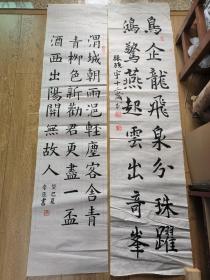 鳥企龍飛泉分珠躍
鴻驚燕起雲出奇峯
渭城朝雨浥輕塵客舍青
青柳色新勸君更盡一盃
酒西出陽關無故人
癸巳夏
書